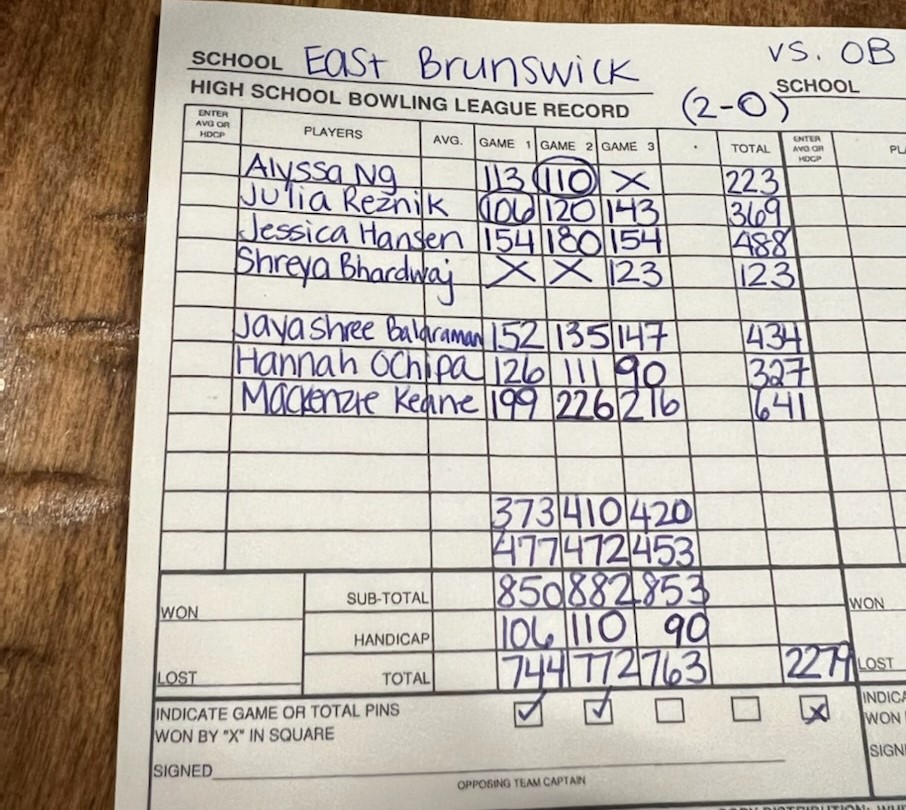 SCHOOL East Brunswick vs. OB
SCHOOL
HIGH SCHOOL BOWLING LEAGUE RECORD (2-0)
ENTER AVG OR HDCP PLAYERS AVG. GAME 1 GAME 2 GAME 3 TOTAL ENTER AVG OR HDCP
Alyssa Ng 113 110 X 223
Julia Reznik 106 120 143 369
Jessica Hansen 154 180 154 488
Shreya Bhardwaj X X 123 123
Jayashree Balaraman 152 135 147 434
Hannah Ochipa 126 111 90 327
Mackenzie Keane 199 226 216 641
373 410 420
477 472 453
WON SUB-TOTAL 850 882 853 WON
HANDICAP 106 110 90
LOST TOTAL 744 772 763 2279 LOST
INDICATE GAME OR TOTAL PINS
WON BY "X" IN SQUARE WON
SIGNED
OPPOSING TEAM CAPTAIN